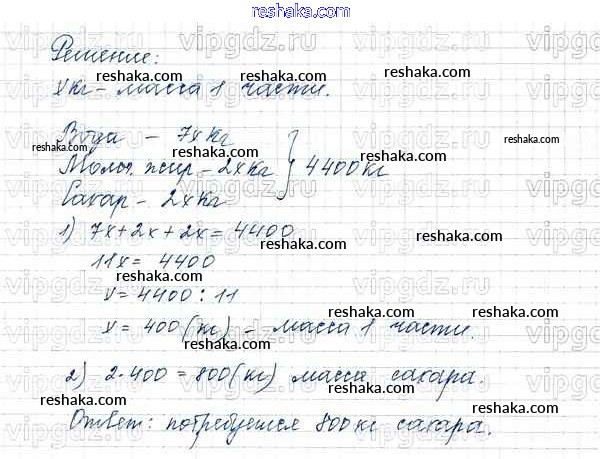 reshaka.com
Решение:
x кг – масса 1 части.
Вода – 7x кг
Молоч. жир – 2x кг } 4400 кг
Сахар – 2x кг
1) 7x+2x+2x=4400
11x= 4400
x=4400:11
x= 400(кг) – масса 1 части.
2) 2·400=800(кг) масса сахара.
Ответ: потребуется 800 кг сахара.
reshaka.com